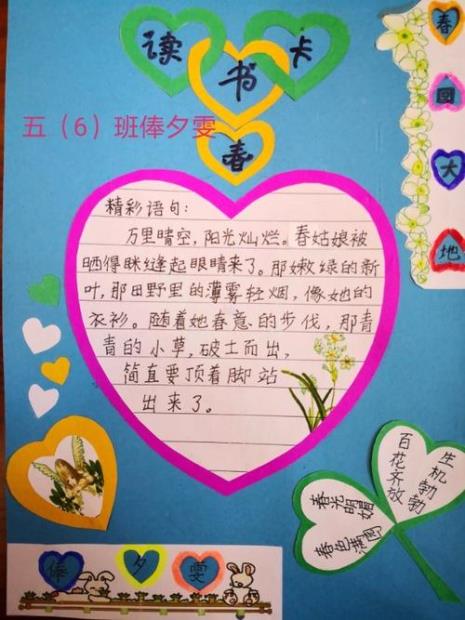 读书卡
春
五（6）班俸夕雯
春
回
大
地
精彩语句：
万里晴空，阳光灿烂。春姑娘被
晒得眯缝起眼睛来了。那嫩绿的新
叶，那田野里的薄雾轻烟，像她的
衣衫。随着她春意的步伐，那青
青的小草，破土而出，
简直要顶着脚站
出来了。
生机勃勃
百花齐放
春光明媚
春色满园
俸夕雯